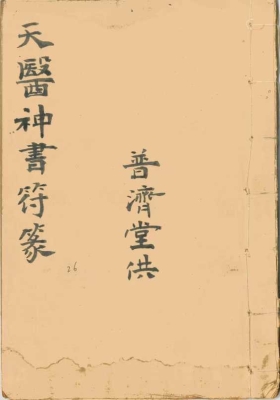 天醫神書符篆
普濟堂供
26